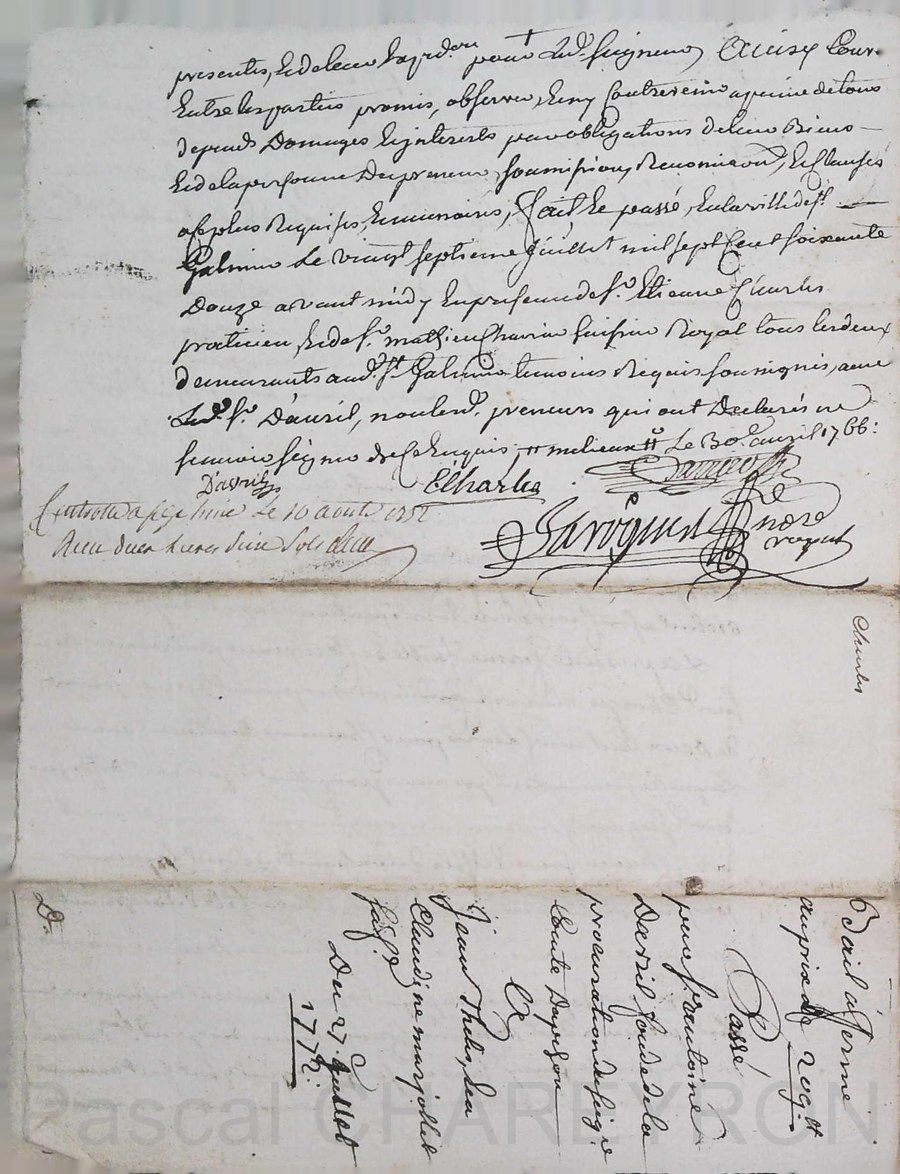 presentes, et de leur expédon pour led. seigneur, Ainsy Con-
Entre les parties promis, observer, et ny Contrevenir a peine de tous
depends Domages et jnterests par obligations de leur Biens
et de la personne Du preneur, soumissions, Renonciaons, et Clauses
a ce plus Requises, et necessaires, fait et passé, en la ville de st.
Galmier Le vingt septieme Juillet mil sept Cent soixante
Douze avant midy En presence de sr. Etienne Charles
praticien, et de sr. mathieu huissier Royal tous les deux
demeurants aud. st Galmier temoins Requis soussignés, avec
Led. sr. D'avril, non lesd. preneurs qui ont Declarés ne
scavoir signer de Ce Enquis Le 30e. avril 1766:
D'avril
ECharles
Controllé a le 10 aoust 1772
Recu deux livres sols
notre
royal
Charles
Bail à ferme
au prix de
Passé
par sr. antoine
Davril fondé de la
procuration de
Comte Dapchon
A
Jean Thelis, et a
Claudine marjollet
sa fe.
Du 27e. Juillet
1772.
D.
Pascal CHAREYRON